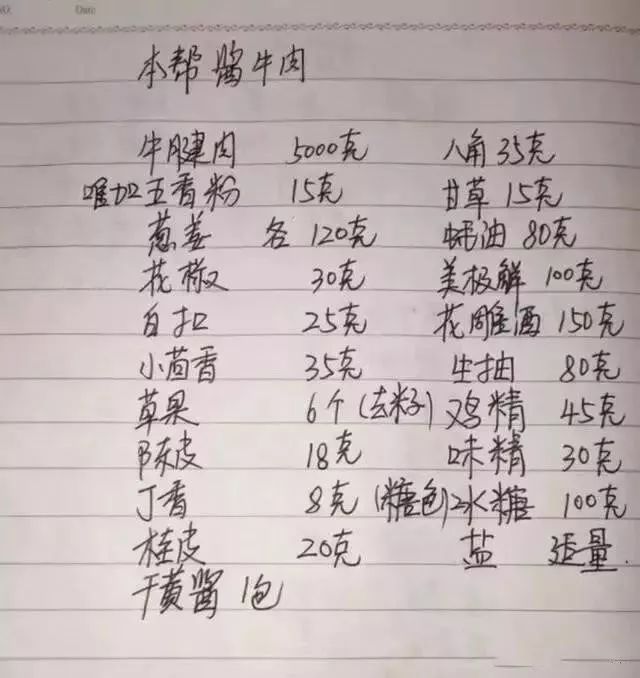 本帮酱牛肉
牛腱肉 5000克 八角 35克
唯加五香粉 15克 甘草 15克
葱姜 各 120克 蚝油 80克
花椒 30克 美极鲜 100克
白扣 25克 花雕酒 150克
小茴香 35克 生抽 80克
草果 6个(去籽) 鸡精 45克
陈皮 18克 味精 30克
丁香 8克 (糖色)冰糖 100克
桂皮 20克 盐 适量
干黄酱 1包